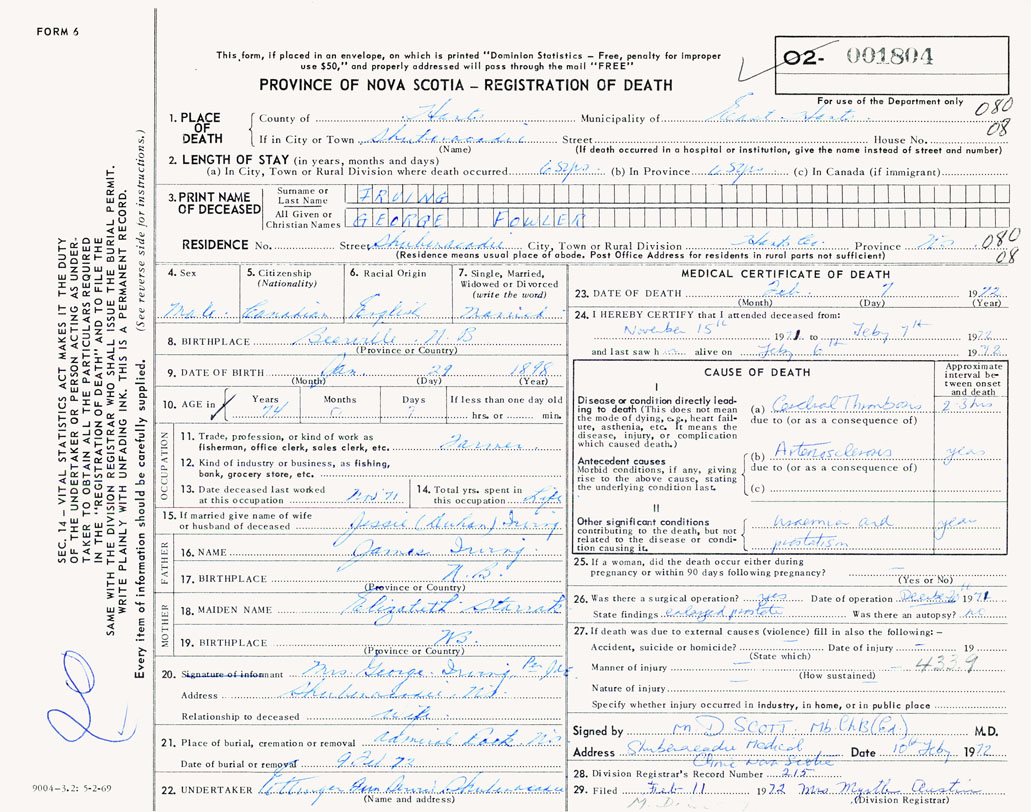 FORM 6
This form, if placed in an envelope, on which is printed "Dominion Statistics – Free, penalty for improper
use $50," and properly addressed will pass through the mail "FREE"
PROVINCE OF NOVA SCOTIA – REGISTRATION OF DEATH
02- 001804
For use of the Department only
080
08
1. PLACE OF DEATH
County of Hants Municipality of East Hants
If in City or Town Shubenacadie Street House No.
(Name) (If death occurred in a hospital or institution, give the name instead of street and number)
2. LENGTH OF STAY (in years, months and days)
(a) In City, Town or Rural Division where death occurred (b) In Province (c) In Canada (if immigrant)
3. PRINT NAME OF DECEASED
Surname or Last Name IRVING
All Given or Christian Names GEORGE FOWLER
RESIDENCE No. Street Shubenacadie City, Town or Rural Division Hants Co. Province N.S.
080
08
(Residence means usual place of abode. Post Office Address for residents in rural parts not sufficient)
4. Sex
Male
5. Citizenship
(Nationality)
Canadian
6. Racial Origin
English
7. Single, Married,
Widowed or Divorced
(write the word)
Married
8. BIRTHPLACE N.B
(Province or Country)
9. DATE OF BIRTH Jan. 29 1898
(Month) (Day) (Year)
10. AGE in
Years Months Days If less than one day old
74 0 9 hrs. or min.
OCCUPATION
11. Trade, profession, or kind of work as
fisherman, office clerk, sales clerk, etc. Farmer
12. Kind of industry or business, as fishing,
bank, grocery store, etc.
13. Date deceased last worked
at this occupation Nov '71
14. Total yrs. spent in
this occupation Life
15. If married give name of wife
or husband of deceased Jessie Irving
FATHER
16. NAME James Irving
17. BIRTHPLACE N.B.
(Province or Country)
MOTHER
18. MAIDEN NAME Elizabeth
19. BIRTHPLACE NB.
(Province or Country)
20. Signature of informant Mrs George Irving Per
Address Shubenacadie N.S.
Relationship to deceased wife
21. Place of burial, cremation or removal Admiral Rock N.S.
Date of burial or removal 9 Feb 72
22. UNDERTAKER Shubenacadie
(Name and address)
MEDICAL CERTIFICATE OF DEATH
23. DATE OF DEATH Feb. 7 1972
(Month) (Day) (Year)
24. I HEREBY CERTIFY that I attended deceased from:
November 15th 1971 to Feby 7th 1972
and last saw him alive on Feby 6th 1972
CAUSE OF DEATH
Approximate
interval be-
tween onset
and death
I
Disease or condition directly lead-
ing to death (This does not mean
the mode of dying, e.g., heart fail-
ure, asthenia, etc. It means the
disease, injury, or complication
which caused death.)
(a) Cerebral Thrombosis 2-3 hrs
due to (or as a consequence of)
Antecedent causes
Morbid conditions, if any, giving
rise to the above cause, stating
the underlying condition last.
(b) Arteriosclerosis years
due to (or as a consequence of)
(c)
II
Other significant conditions
contributing to the death, but not
related to the disease or condi-
tion causing it.
uraemia and years
prostatism
25. If a woman, did the death occur either during
pregnancy or within 90 days following pregnancy?
(Yes or No)
26. Was there a surgical operation? yes Date of operation 1971
State findings enlarged prostate Was there an autopsy? no
27. If death was due to external causes (violence) fill in also the following: –
Accident, suicide or homicide? – Date of injury – 19
(State which)
Manner of injury – 4339
(How sustained)
Nature of injury
Specify whether injury occurred in industry, in home, or in public place
Signed by M. D SCOTT. Mb ChB (Ed) M.D.
Address Shubenacadie Medical Date 10th Feby 1972
Clinic Nova Scotia
28. Division Registrar's Record Number 215
29. Filed Feb 11 1972 Mrs Myrtle Austin
(Division Registrar)
SEC. 14 – VITAL STATISTICS ACT MAKES IT THE DUTY
OF THE UNDERTAKER OR PERSON ACTING AS UNDER-
TAKER TO OBTAIN ALL THE PARTICULARS REQUIRED
IN THE "REGISTRATION OF DEATH" AND TO FILE THE
SAME WITH THE DIVISION REGISTRAR WHO SHALL ISSUE THE BURIAL PERMIT.
WRITE PLAINLY WITH UNFADING INK. THIS IS A PERMANENT RECORD.
Every item of information should be carefully supplied. (See reverse side for instructions.)
9004-3.2: 5-2-69